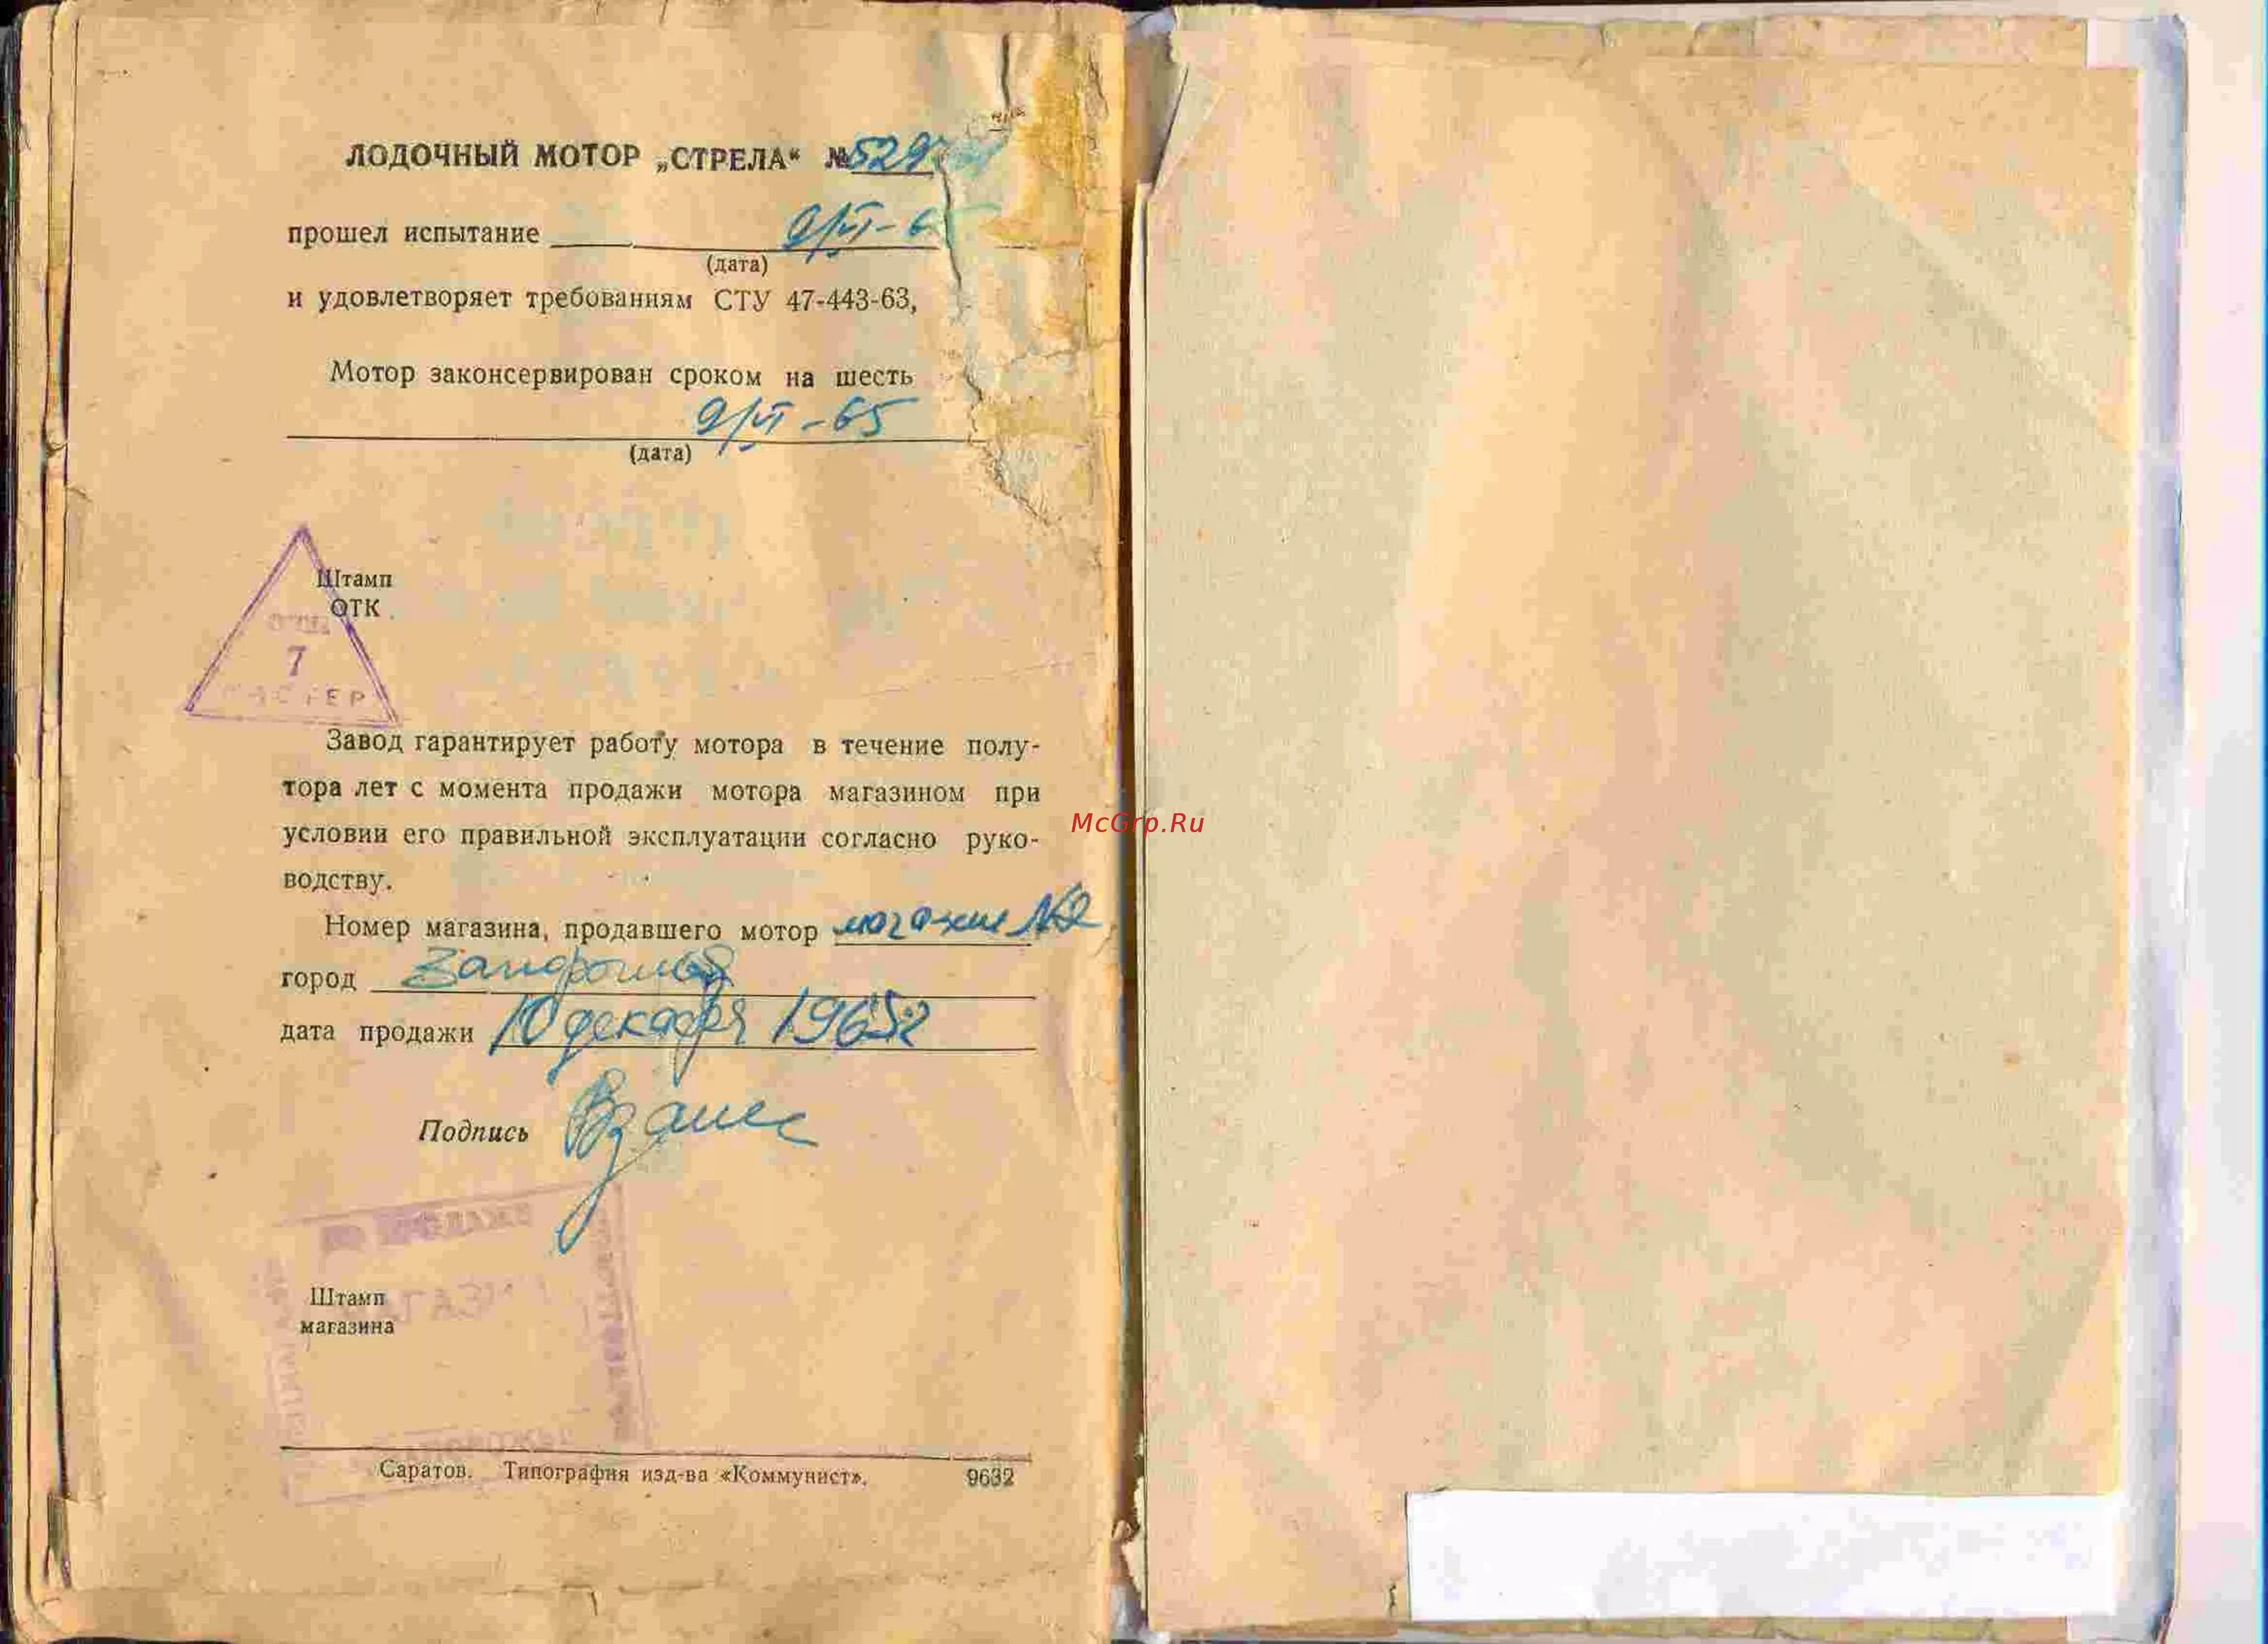 ЛОДОЧНЫЙ МОТОР „СТРЕЛА“ № 529
прошел испытание 9/VI-6
(дата)
и удовлетворяет требованиям СТУ 47-443-63,
Мотор законсервирован сроком на шесть
9/VI-65
(дата)
Штамп
ОТК
7
МАСТЕР
Завод гарантирует работу мотора в течение полу-
тора лет с момента продажи мотора магазином при
условии его правильной эксплуатации согласно руко-
водству.
Номер магазина, продавшего мотор магазин №2
город Запорожье
дата продажи 10 декабря 1965г
Подпись
Штамп
магазина
Саратов. Типография изд-ва «Коммунист». 9632
McGrp.Ru